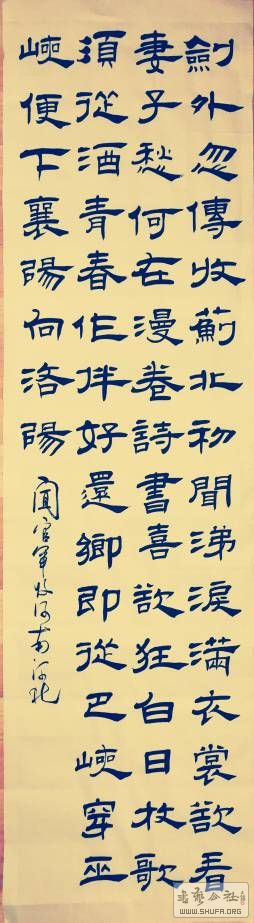 劍外忽傳收薊北初聞涕淚滿衣裳卻看
妻子愁何在漫卷詩書喜欲狂白日放歌
須從酒青春作伴好還鄉即從巴峽穿巫
峽便下襄陽向洛陽
聞官軍收河南河北
書藝公社
WWW.SHUFA.ORG